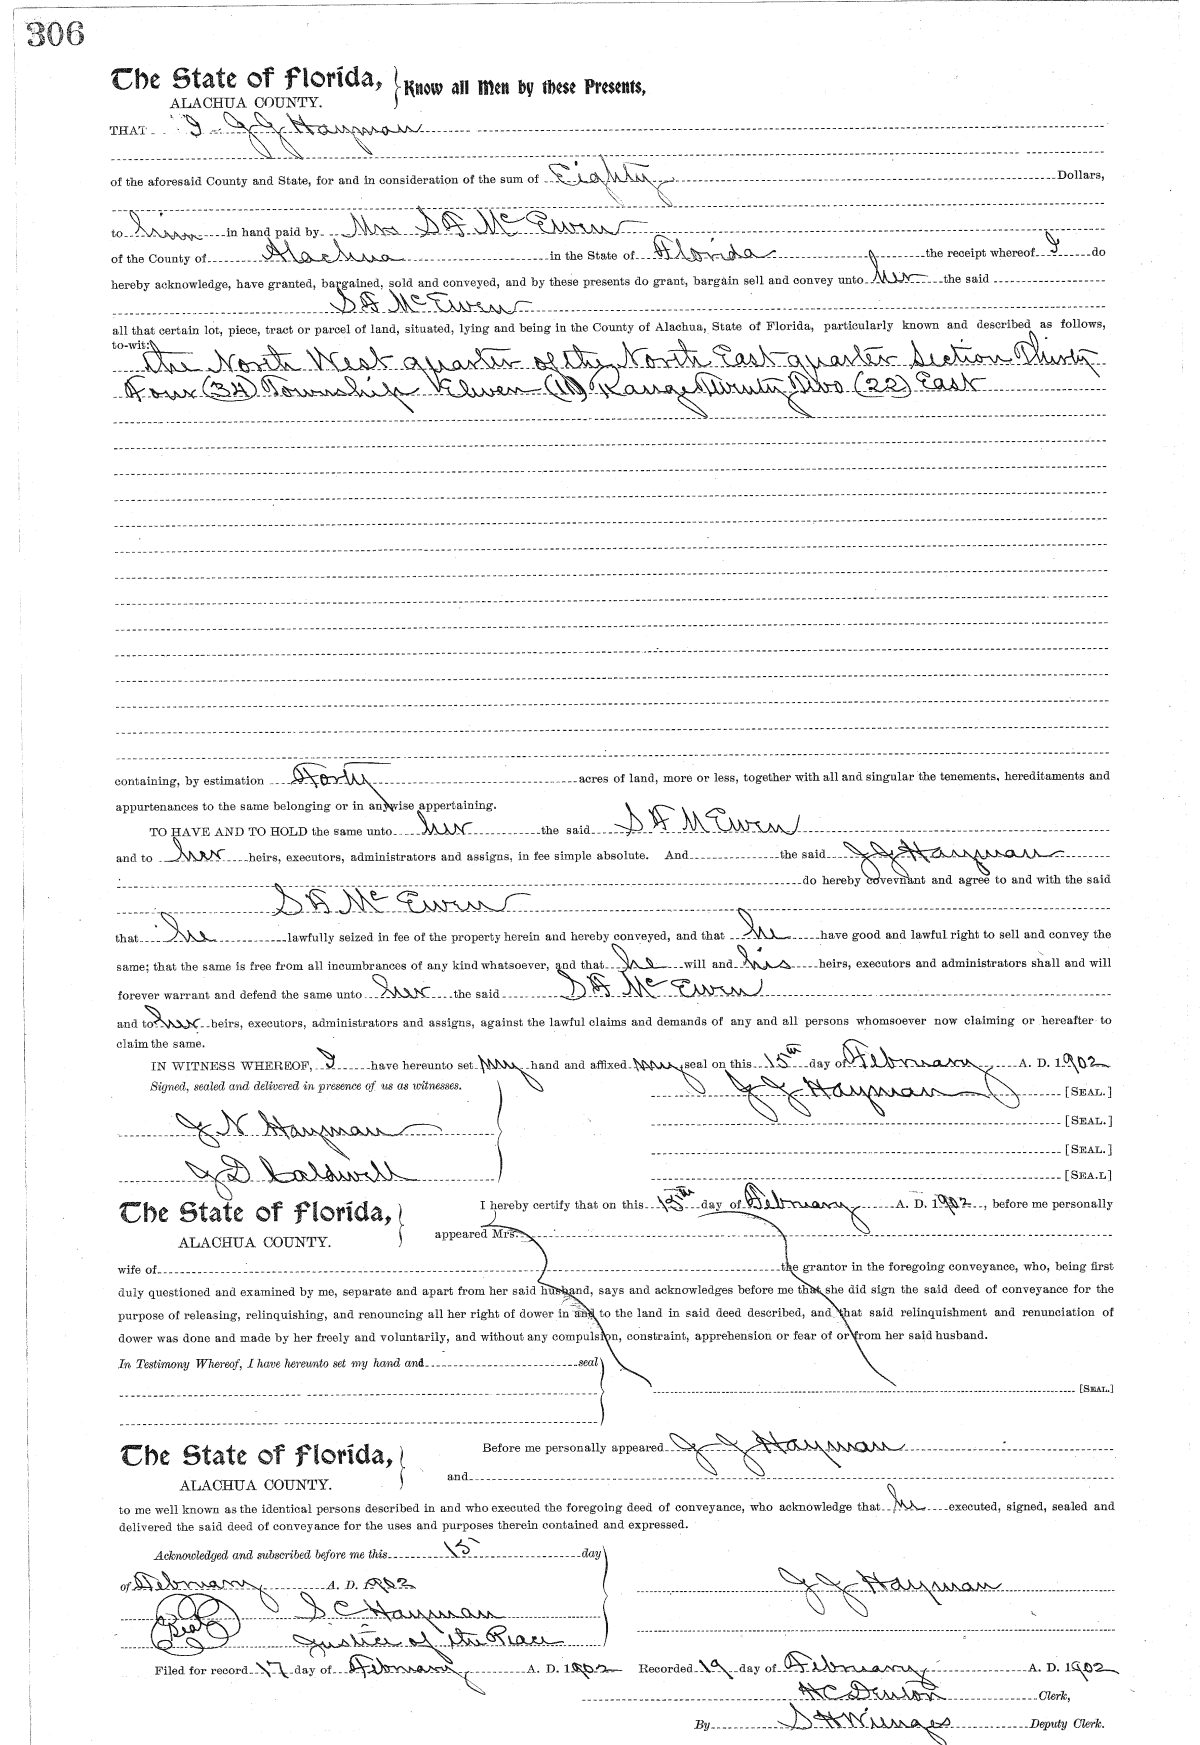 306
The State of Florida, Know all Men by these Presents,
ALACHUA COUNTY.
THAT I J J Hayman
of the aforesaid County and State, for and in consideration of the sum of Eighty Dollars,
to him in hand paid by Mrs S A McEwen
of the County of Alachua in the State of Florida the receipt whereof I do
hereby acknowledge, have granted, bargained, sold and conveyed, and by these presents do grant, bargain sell and convey unto her the said
S A McEwen
all that certain lot, piece, tract or parcel of land, situated, lying and being in the County of Alachua, State of Florida, particularly known and described as follows,
to-wit: the North West quarter of the North East quarter Section Thirty
Four (34) Township Eleven (11) Range Twenty Two (22) East
containing, by estimation Forty acres of land, more or less, together with all and singular the tenements, hereditaments and
appurtenances to the same belonging or in anywise appertaining.
TO HAVE AND TO HOLD the same unto her the said S A McEwen
and to her heirs, executors, administrators and assigns, in fee simple absolute. And the said J J Hayman
do hereby covevnant and agree to and with the said
S A McEwen
that he lawfully seized in fee of the property herein and hereby conveyed, and that he have good and lawful right to sell and convey the
same; that the same is free from all incumbrances of any kind whatsoever, and that he will and his heirs, executors and administrators shall and will
forever warrant and defend the same unto her the said S A McEwen
and to her heirs, executors, administrators and assigns, against the lawful claims and demands of any and all persons whomsoever now claiming or hereafter to
claim the same.
IN WITNESS WHEREOF, I have hereunto set my hand and affixed my seal on this 15th day of February A. D. 1902
Signed, sealed and delivered in presence of us as witnesses. J J Hayman [SEAL.]
[SEAL.]
J N Hayman
[SEAL.]
J D Caldwell [SEA.L]
The State of Florida, I hereby certify that on this 15th day of February A. D. 1902, before me personally
ALACHUA COUNTY. appeared Mrs.
wife of the grantor in the foregoing conveyance, who, being first
duly questioned and examined by me, separate and apart from her said husband, says and acknowledges before me that she did sign the said deed of conveyance for the
purpose of releasing, relinquishing, and renouncing all her right of dower in and to the land in said deed described, and that said relinquishment and renunciation of
dower was done and made by her freely and voluntarily, and without any compulsion, constraint, apprehension or fear of or from her said husband.
In Testimony Whereof, I have hereunto set my hand and seal
[SEAL.]
The State of Florida, Before me personally appeared J J Hayman
ALACHUA COUNTY. and
to me well known as the identical persons described in and who executed the foregoing deed of conveyance, who acknowledge that he executed, signed, sealed and
delivered the said deed of conveyance for the uses and purposes therein contained and expressed.
Acknowledged and subscribed before me this 15 day
of February A. D. 1902 J J Hayman
Seal S C Hayman
Justice of the Peace
Filed for record 17 day of February A. D. 1902 Recorded 19 day of February A. D. 1902
H C Denton Clerk,
By S H Wienges Deputy Clerk.